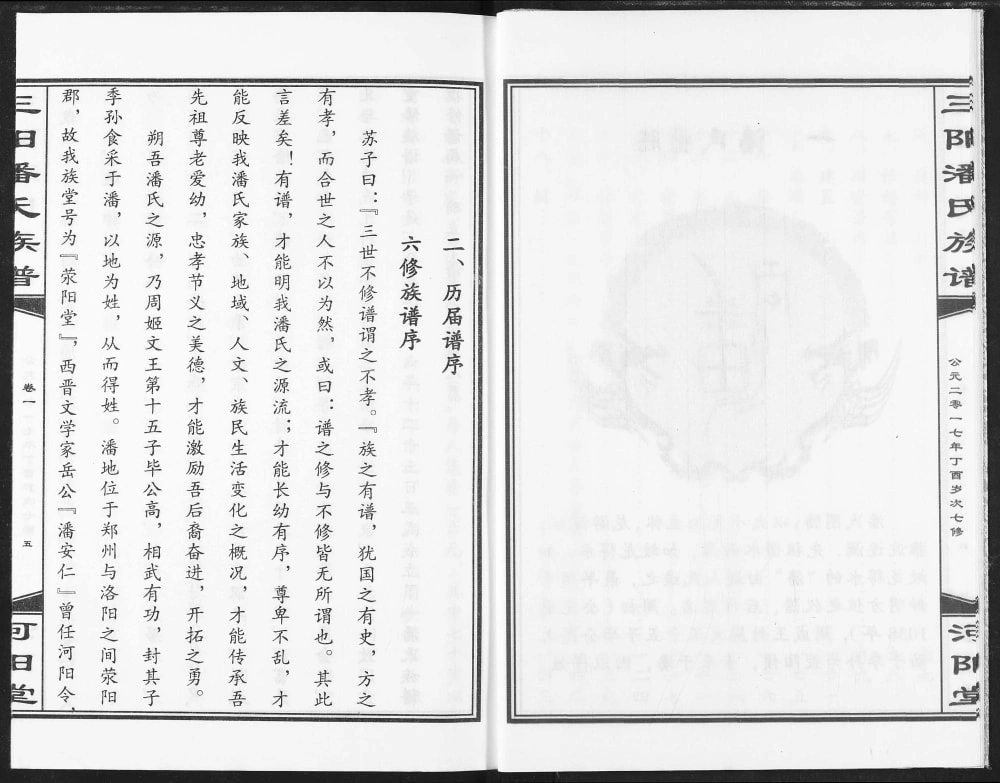 三阳潘氏族谱
公元二零一七年丁酉岁次七修
河阳堂
二、历届谱序
六修族谱序
苏子曰：『三世不修谱谓之不孝。『族之有谱，犹国之有史，方之
有孝，而合世之人不以为然，或曰：谱之修与不修皆无所谓也。其此
言差矣！有谱，才能明我潘氏之源流；才能长幼有序，尊卑不乱，才
能反映我潘氏家族、地域、人文、族民生活变化之概况，才能传承吾
先祖尊老爱幼，忠孝节义之美德，才能激励吾后裔奋进，开拓之勇。
朔吾潘氏之源，乃周姬文王第十五子毕公高，相武有功，封其子
季孙食采于潘，以地为姓，从而得姓。潘地位于郑州与洛阳之间荥阳
郡，故我族堂号为『荥阳堂』，西晋文学家岳公『潘安仁』曾任河阳令，
三阳潘氏族谱
卷一
五
河阳堂